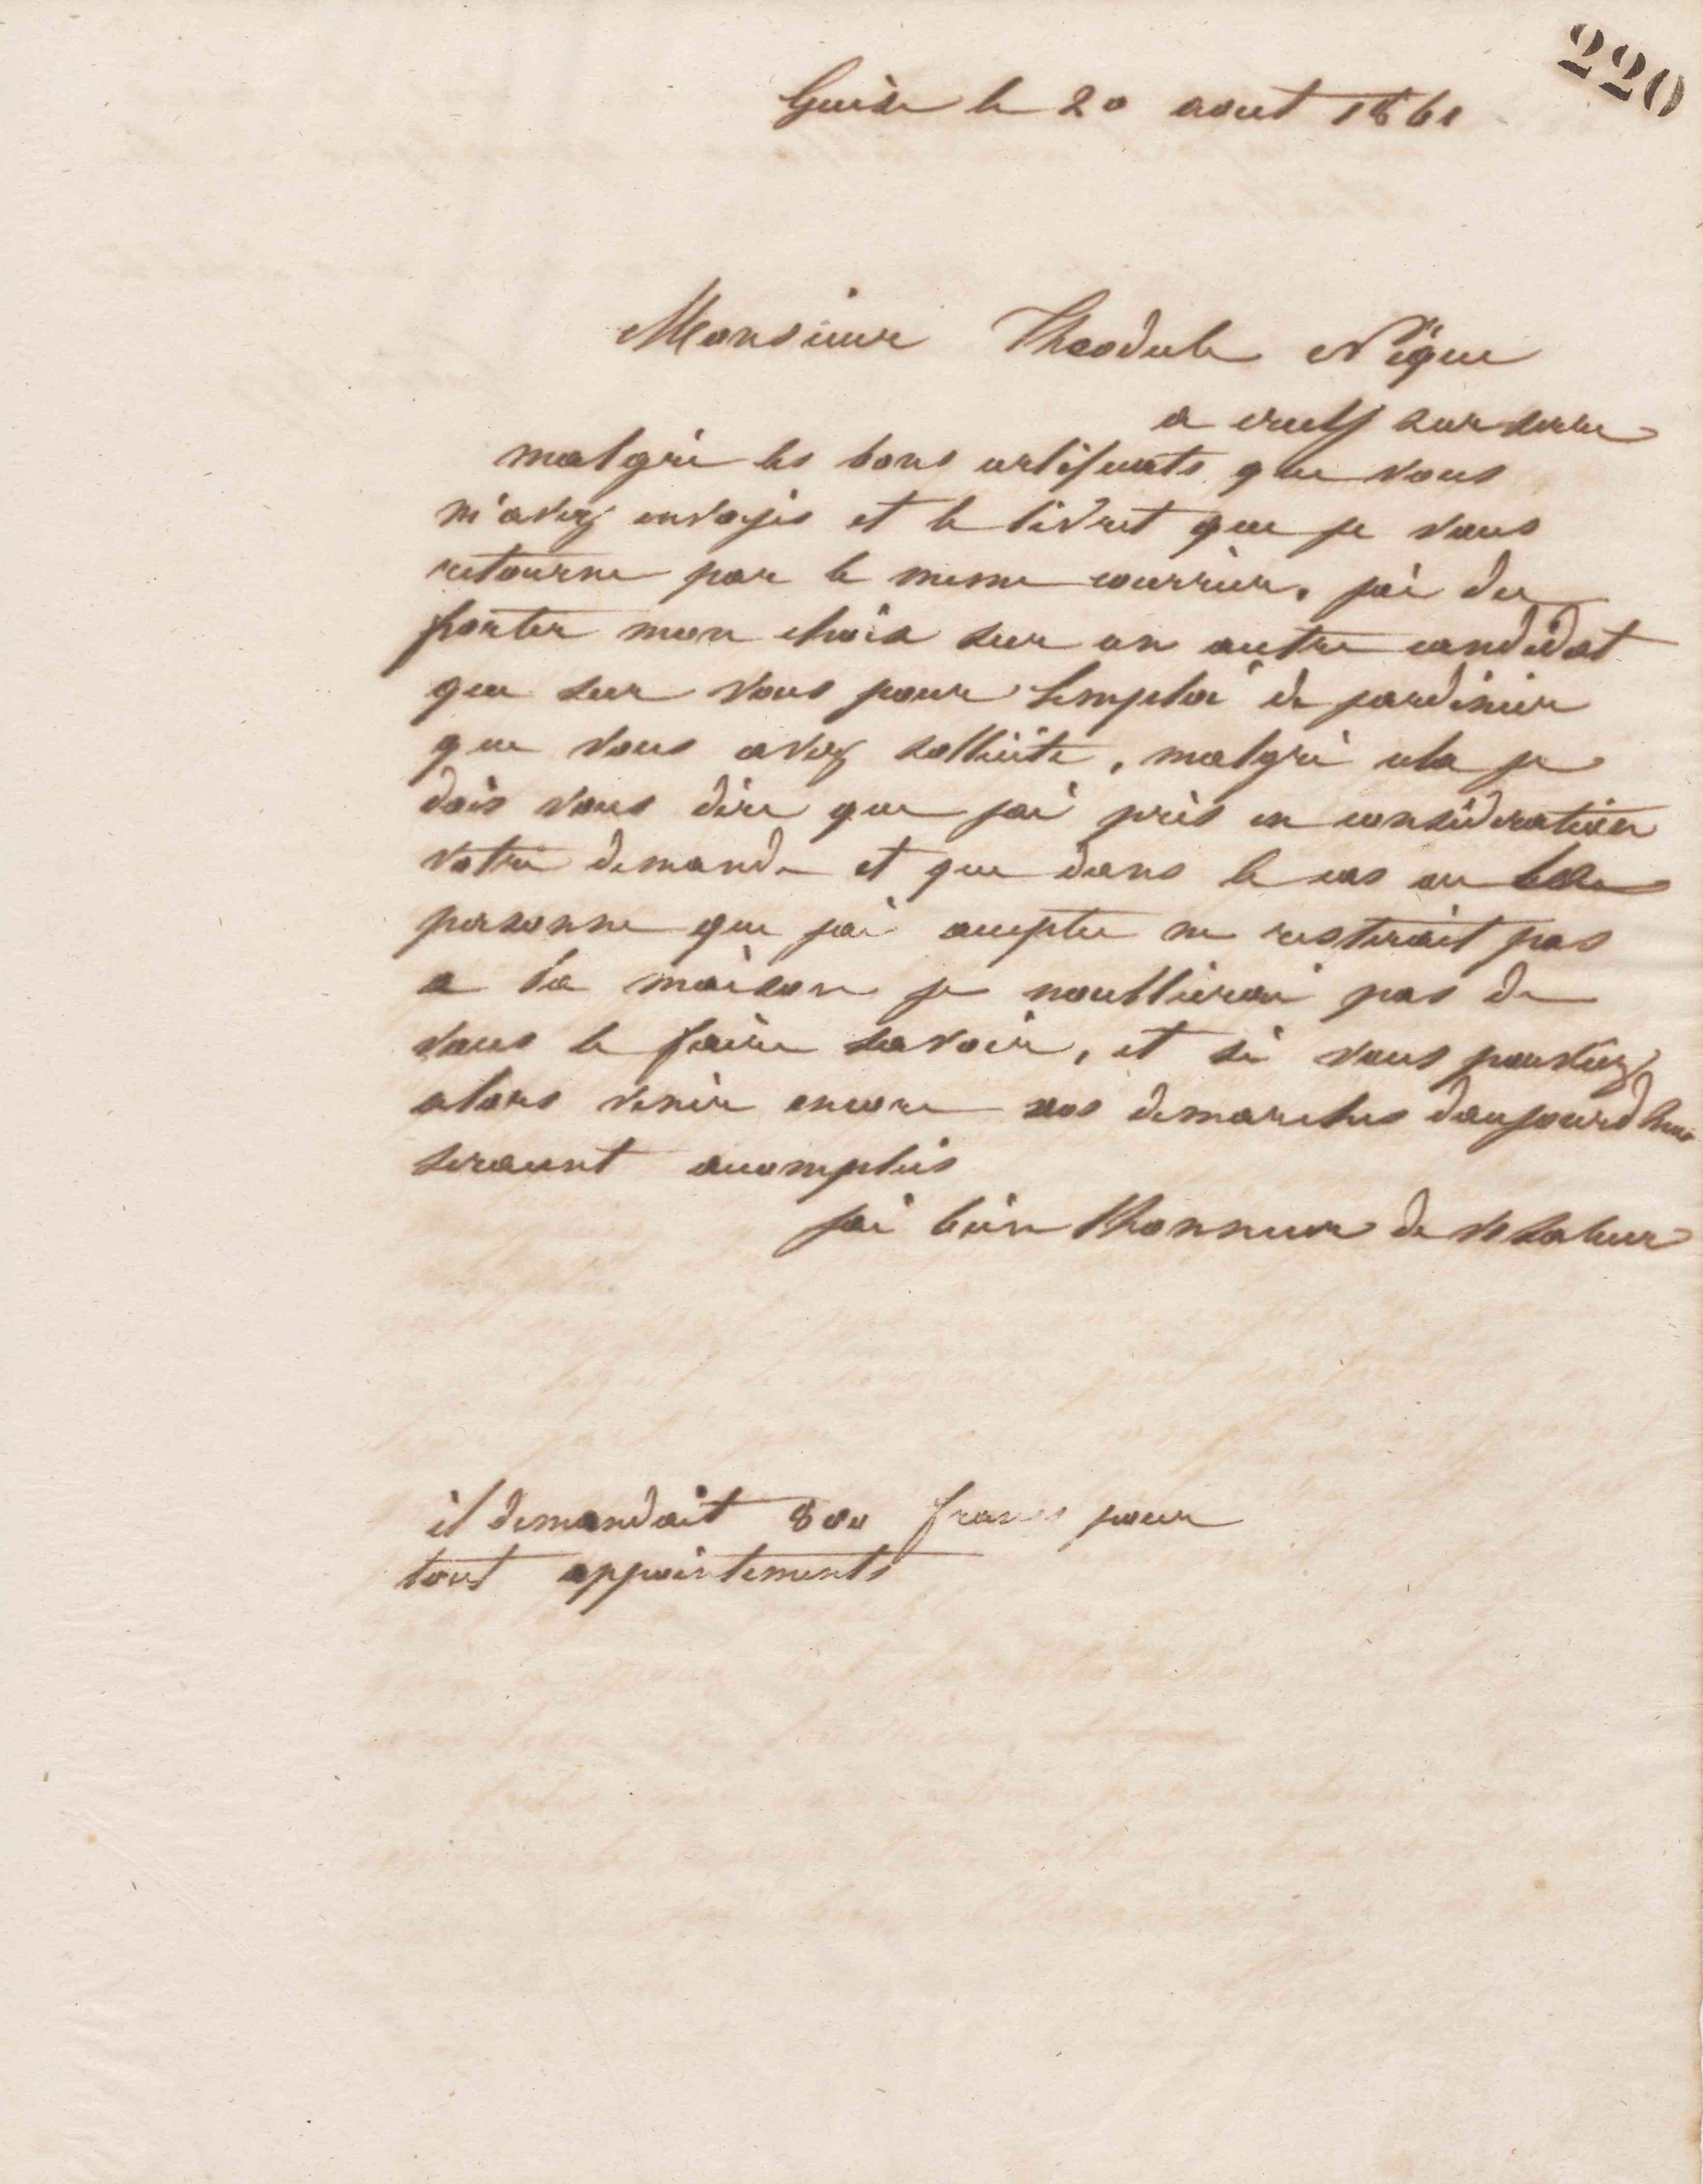 220
Guise le 20 aout 1861
Monsieur Theodule Nique
a crecy sur serre
malgré les bons certificats que vous
m'avez envoyés et le livret que je vous
retourne par le meme courrier, jai du
porter mon choix sur un autre candidat
que sur vous pour lemploi de jardinier
que vous avez sollicité, malgré cela je
dois vous dire que jai pris en consideration
votre demande et que dans le cas ou la
personne que jai acceptee ne resterait pas
a la maison je noublierai pas de
vous le faire savoir, et si vous pouviez
alors venir encore vos demarches daujourdhui
seraient accomplies
jai bien lhonneur de vs saluer
il demandait 800 francs pour
tout appointements